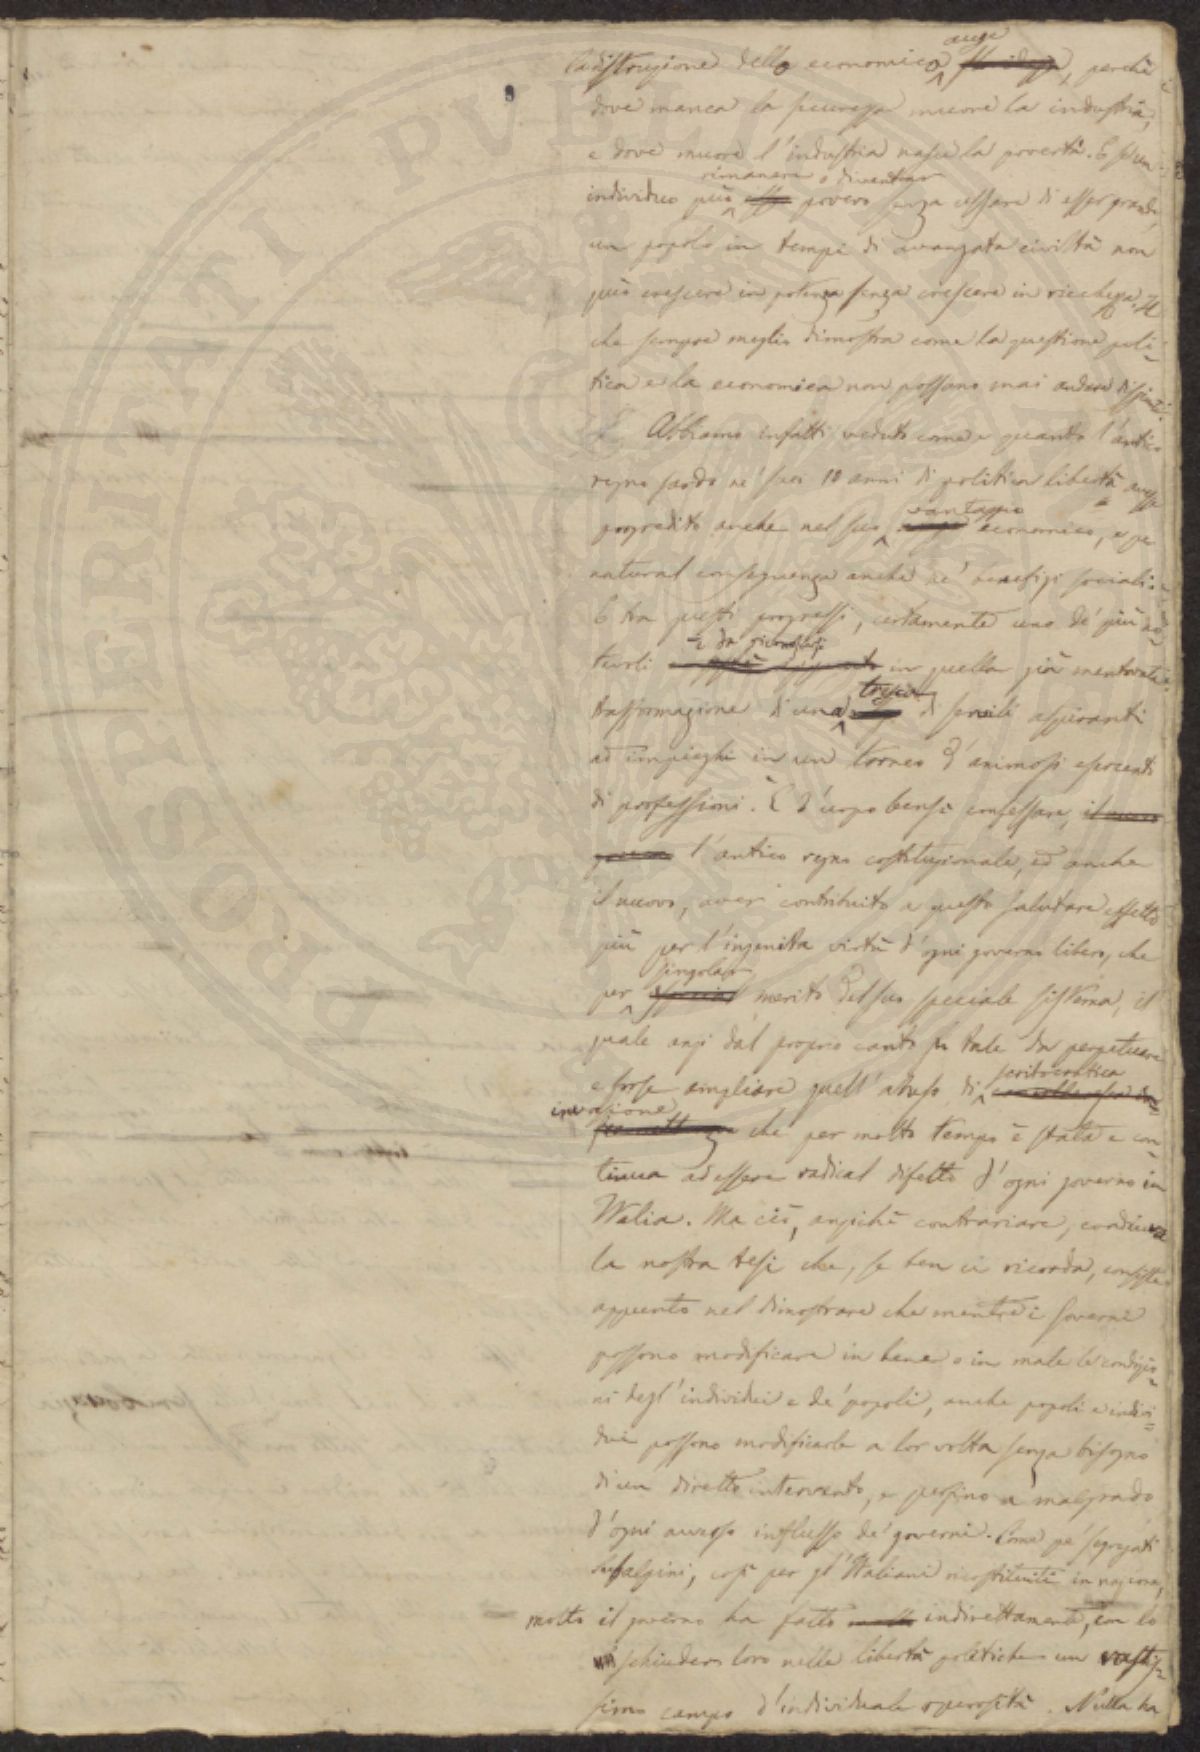 la distruzione dello economico auge, perchè
dove manca la sicurezza muore la industria,
e dove muore l'industria nasce la povertà. E se un
individuo può rimanere o diventar povero senza cessare di esser grande,
un popolo in tempi di avanzata civiltà non
può crescere in potenza senza crescere in ricchezza. Il
che sempre meglio dimostra come la questione poli-
tica e la economica non possano mai andare disgiunte.
Abbiamo infatti veduto come e quando l'antico
regno sardo ne' suoi 10 anni di politica libertà avesse
progredito anche nel suo vantaggio economico, e per
natural conseguenza anche ne' benefizi sociali.
E tra questi progressi, certamente uno de' più no-
tevoli è da in quella già mentovata
trasformazione d'una tresca di servili aspiranti
ad impieghi in un torneo d'animosi esercenti
di professioni. È d'uopo bensì confessare, il nuovo
l'antico regno costituzionale, ed anche
il nuovo, aver contribuito a questo salutare effetto
più per l'ingenita virtù d'ogni governo libero, che
per singolar merito del suo speciale sistema, il
quale anzi dal proprio canto fu tale da perpetuare
e forse ampliare quell'abuso di scritocratica
invazione che per molto tempo è stata e con-
tinua ad essere radical difetto d'ogni governo in
Italia. Ma ciò, anzichè contrariare, coadiuva
la nostra tesi che, se ben ci ricorda, consiste
appunto nel dimostrare che mentre i Governi
possono modificare in bene o in male le condizio-
ni degl'individui e de' popoli, anche popoli e indivi-
dui possono modificarle a lor volta senza bisogno
di un diretto intervento, e persino a malgrado
d'ogni avverso influsso de' governi. Come pe' segregati
Subalpini, così per gl'Italiani ricostituiti in nazione,
molto il governo ha fatto indirettamente, con lo
schiuder loro nelle libertà politiche un vastis-
simo campo d'individuale operosità. Nulla ha
PROSPERITATI PVBLICAE